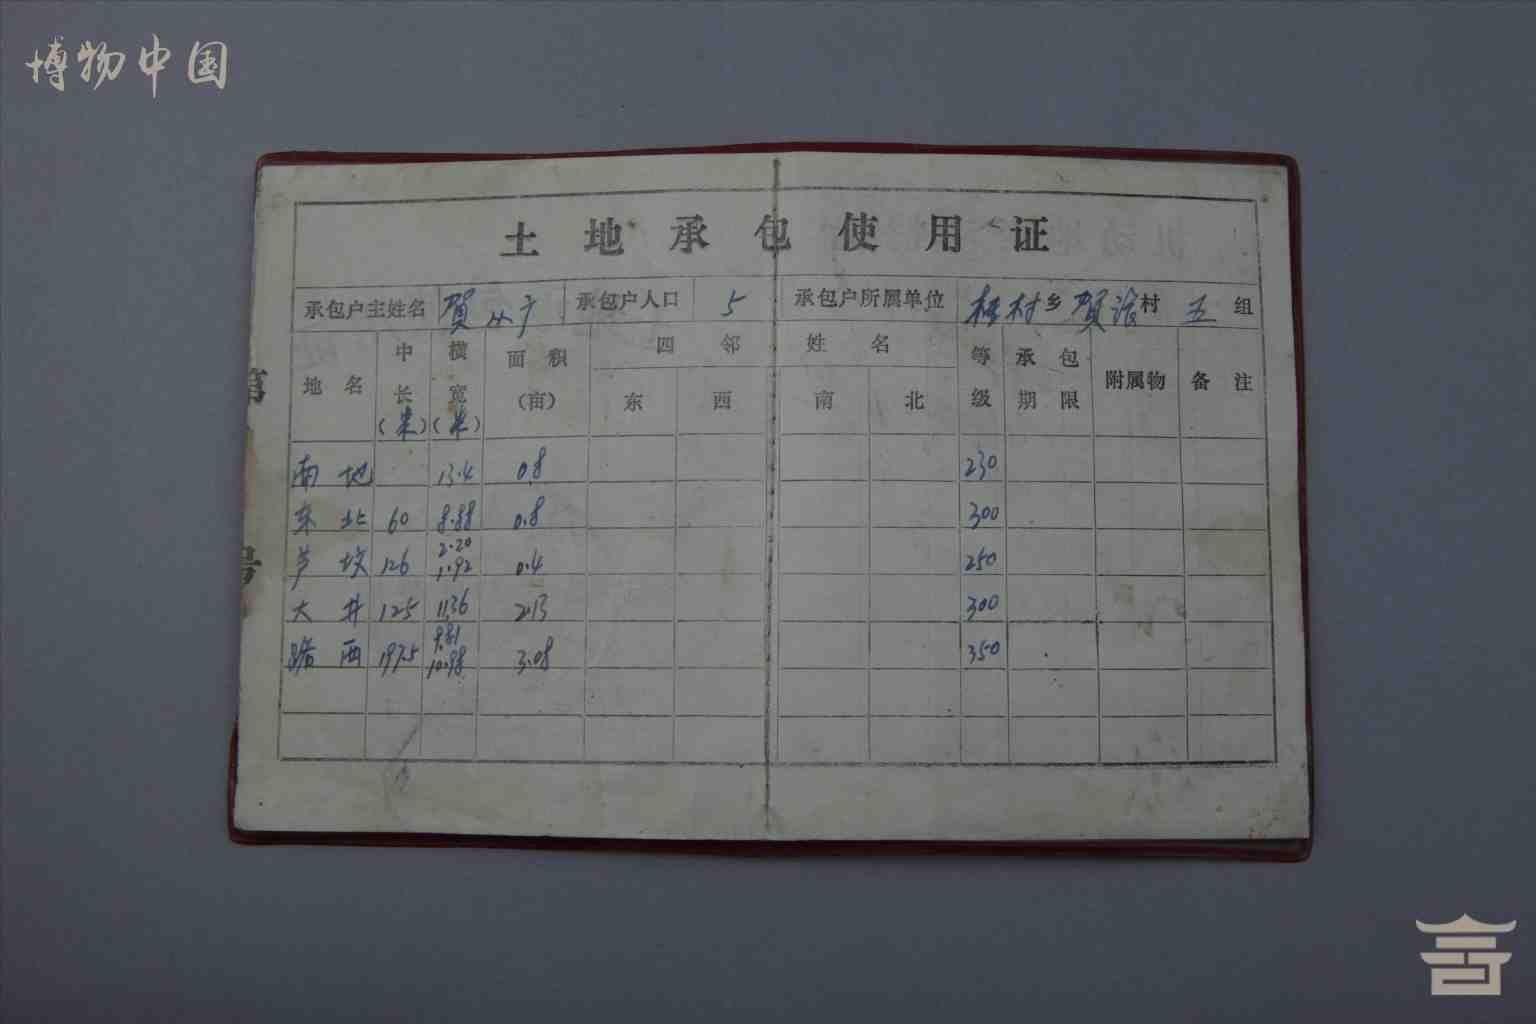 博物中国
土地承包使用证
承包户主姓名 賀 承包户人口 5 承包户所属单位 村乡賀 村五组
地名 中长(米) 横宽(米) 面积(亩) 四邻姓名 等级 承包期限 附属物 备注
东 西 南 北
南地 13.4 0.8 230
东北 60 8.88 0.8 300
芦坟 126 2.20 1.92 0.4 250
大井 125 11.36 2.13 300
西 197.5 9.81 10.98 3.08 350
第
号